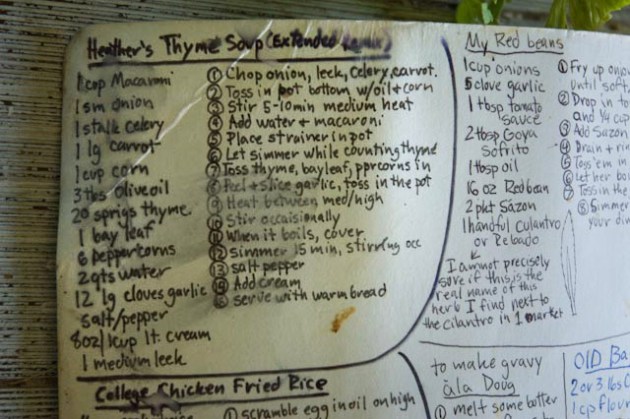 Heather's Thyme Soup (Extended Remix)
1 cup Macaroni
1 sm onion
1 stalk celery
1 lg carrot
1 cup corn
3 tbs olive oil
20 sprigs thyme
1 bay leaf
6 peppercorns
2 qts water
12 lg cloves garlic
salt/pepper
8oz/1cup lt. cream
1 medium leek
① Chop onion, leek, celery, carrot.
② Toss in pot bottom w/oil + corn
③ Stir 5-10min medium heat
④ Add water + macaroni
⑤ Place strainer in pot
⑥ Let simmer while counting thyme
⑦ Toss thyme, bayleaf, pprcorns in
⑧ Peel + slice garlic, toss in the pot
⑨ Heat between med/high
⑩ Stir occaisionally
⑪ When it boils, cover
⑫ simmer 15 min, stirring occ
⑬ salt pepper
⑭ Add cream
⑮ serve with warm bread
My Red beans
1 cup onions
5 clove garlic
1 tbsp tomato
sauce
2 tbsp Goya
Sofrito
1 tbsp oil
16 oz Red bean
2 pkt Sazon
1 handful culantro
or Recado
I am not precisely
sure if this is the
real name of this
herb I find next to
the cilantro in 1 market
① Fry up
until soft
② Drop in
and 1/4 cup
③ Add Sazon
④ Drain +
⑤ Toss 'em in
⑥ Let her
⑦ Toss in the
⑧ Simmer
your
College Chicken Fried Rice
① scramble egg in oil on high
to make gravy
àla Doug
① melt some butter
OLD
2 or 3 lbs
1 cp flour